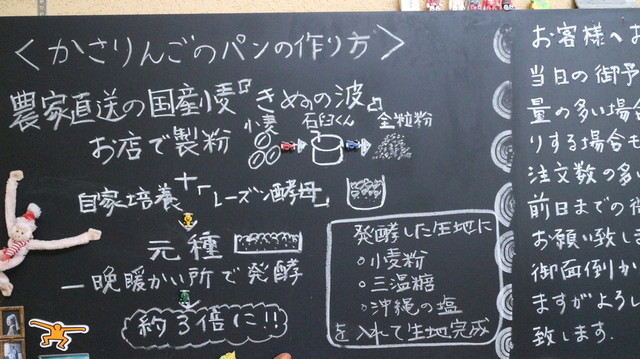 ＜かさりんごのパンの作り方＞
農家直送の国産小麦『きぬの波』
小麦 石臼くん 全粒粉
お店で製粉
＋
自家培養「レーズン酵母」
元種
一晩暖かい所で発酵
約3倍に!!
発酵した生地に
○小麦粉
○三温糖
○沖縄の塩
を入れて生地完成
お客様へお
当日の御予
量の多い場合
りする場合も
注文数の多い
前日までの御
お願い致しま
御面倒か
ますがよろし
致します.